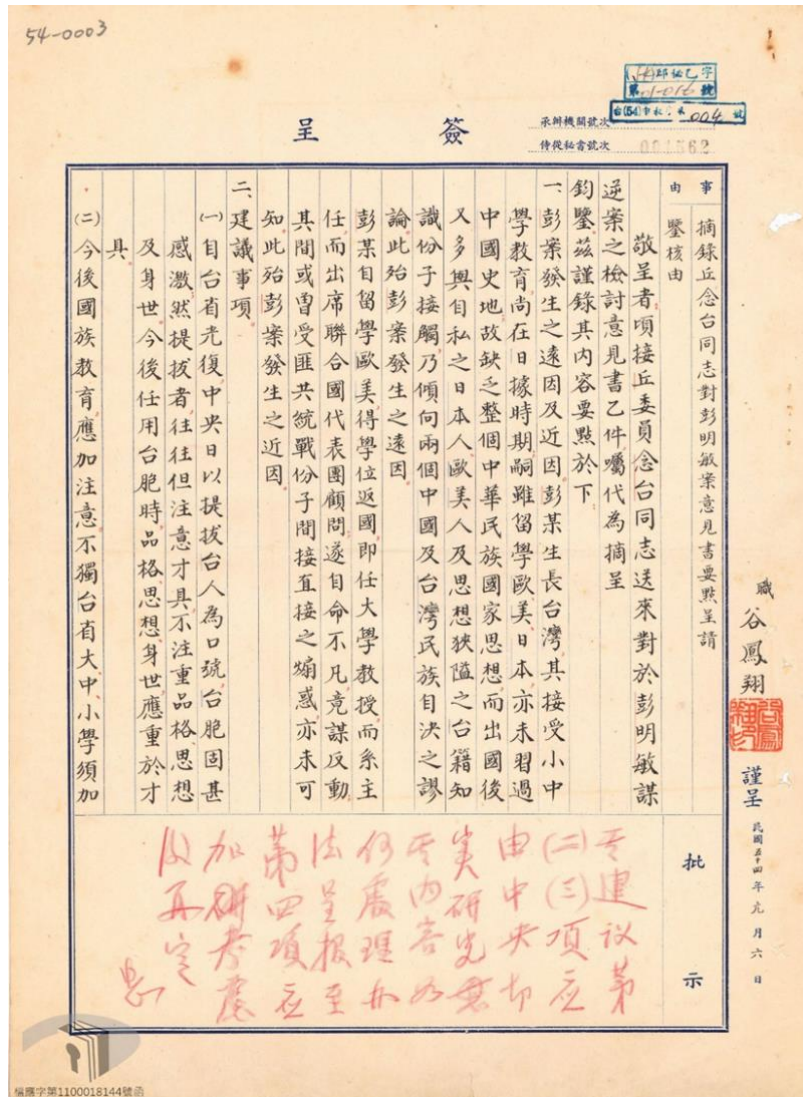 54-0003
簽呈
承辦機關號次
侍從秘書號次 001562
事由
摘錄丘念台同志對彭明敏案意見書要點呈請
鑒核由
敬呈者頃接丘委員念台同志送來對於彭明敏謀
逆案之檢討意見書乙件囑代為摘呈
鈞鑒茲謹錄其內容要點於下
一、彭案發生之遠因及近因彭某生長台灣其接受小中
學教育尚在日據時期嗣雖留學歐美日本亦未習過
中國史地故缺乏整個中華民族國家思想而出國後
又多與自私之日本人歐美人及思想狹隘之台籍知
識份子接觸乃傾向兩個中國及台灣民族自決之謬
論此殆彭案發生之遠因
彭某自留學歐美得學位返國即任大學教授而系主
任而出席聯合國代表團顧問遂自命不凡竟謀反動
其間或曾受匪共統戰份子間接直接之煽惑亦未可
知此殆彭案發生之近因
二、建議事項
(一)自台省光復中央日以提拔台人為口號台胞固甚
感激然提拔者往往但注意才具不注重品格思想
及身世今後任用台胞時品格思想身世應重於才
具
(二)今後國族教育應加注意不獨台省大、中、小學須加
職 谷鳳翔 謹呈 民國五十四年元月六日
批示
建议第
(二)(三)項应
由中央切
实研究
內容如
何處理办
法呈报至
第四項应
加研考慮
后再定
檔應字第1100018144號函